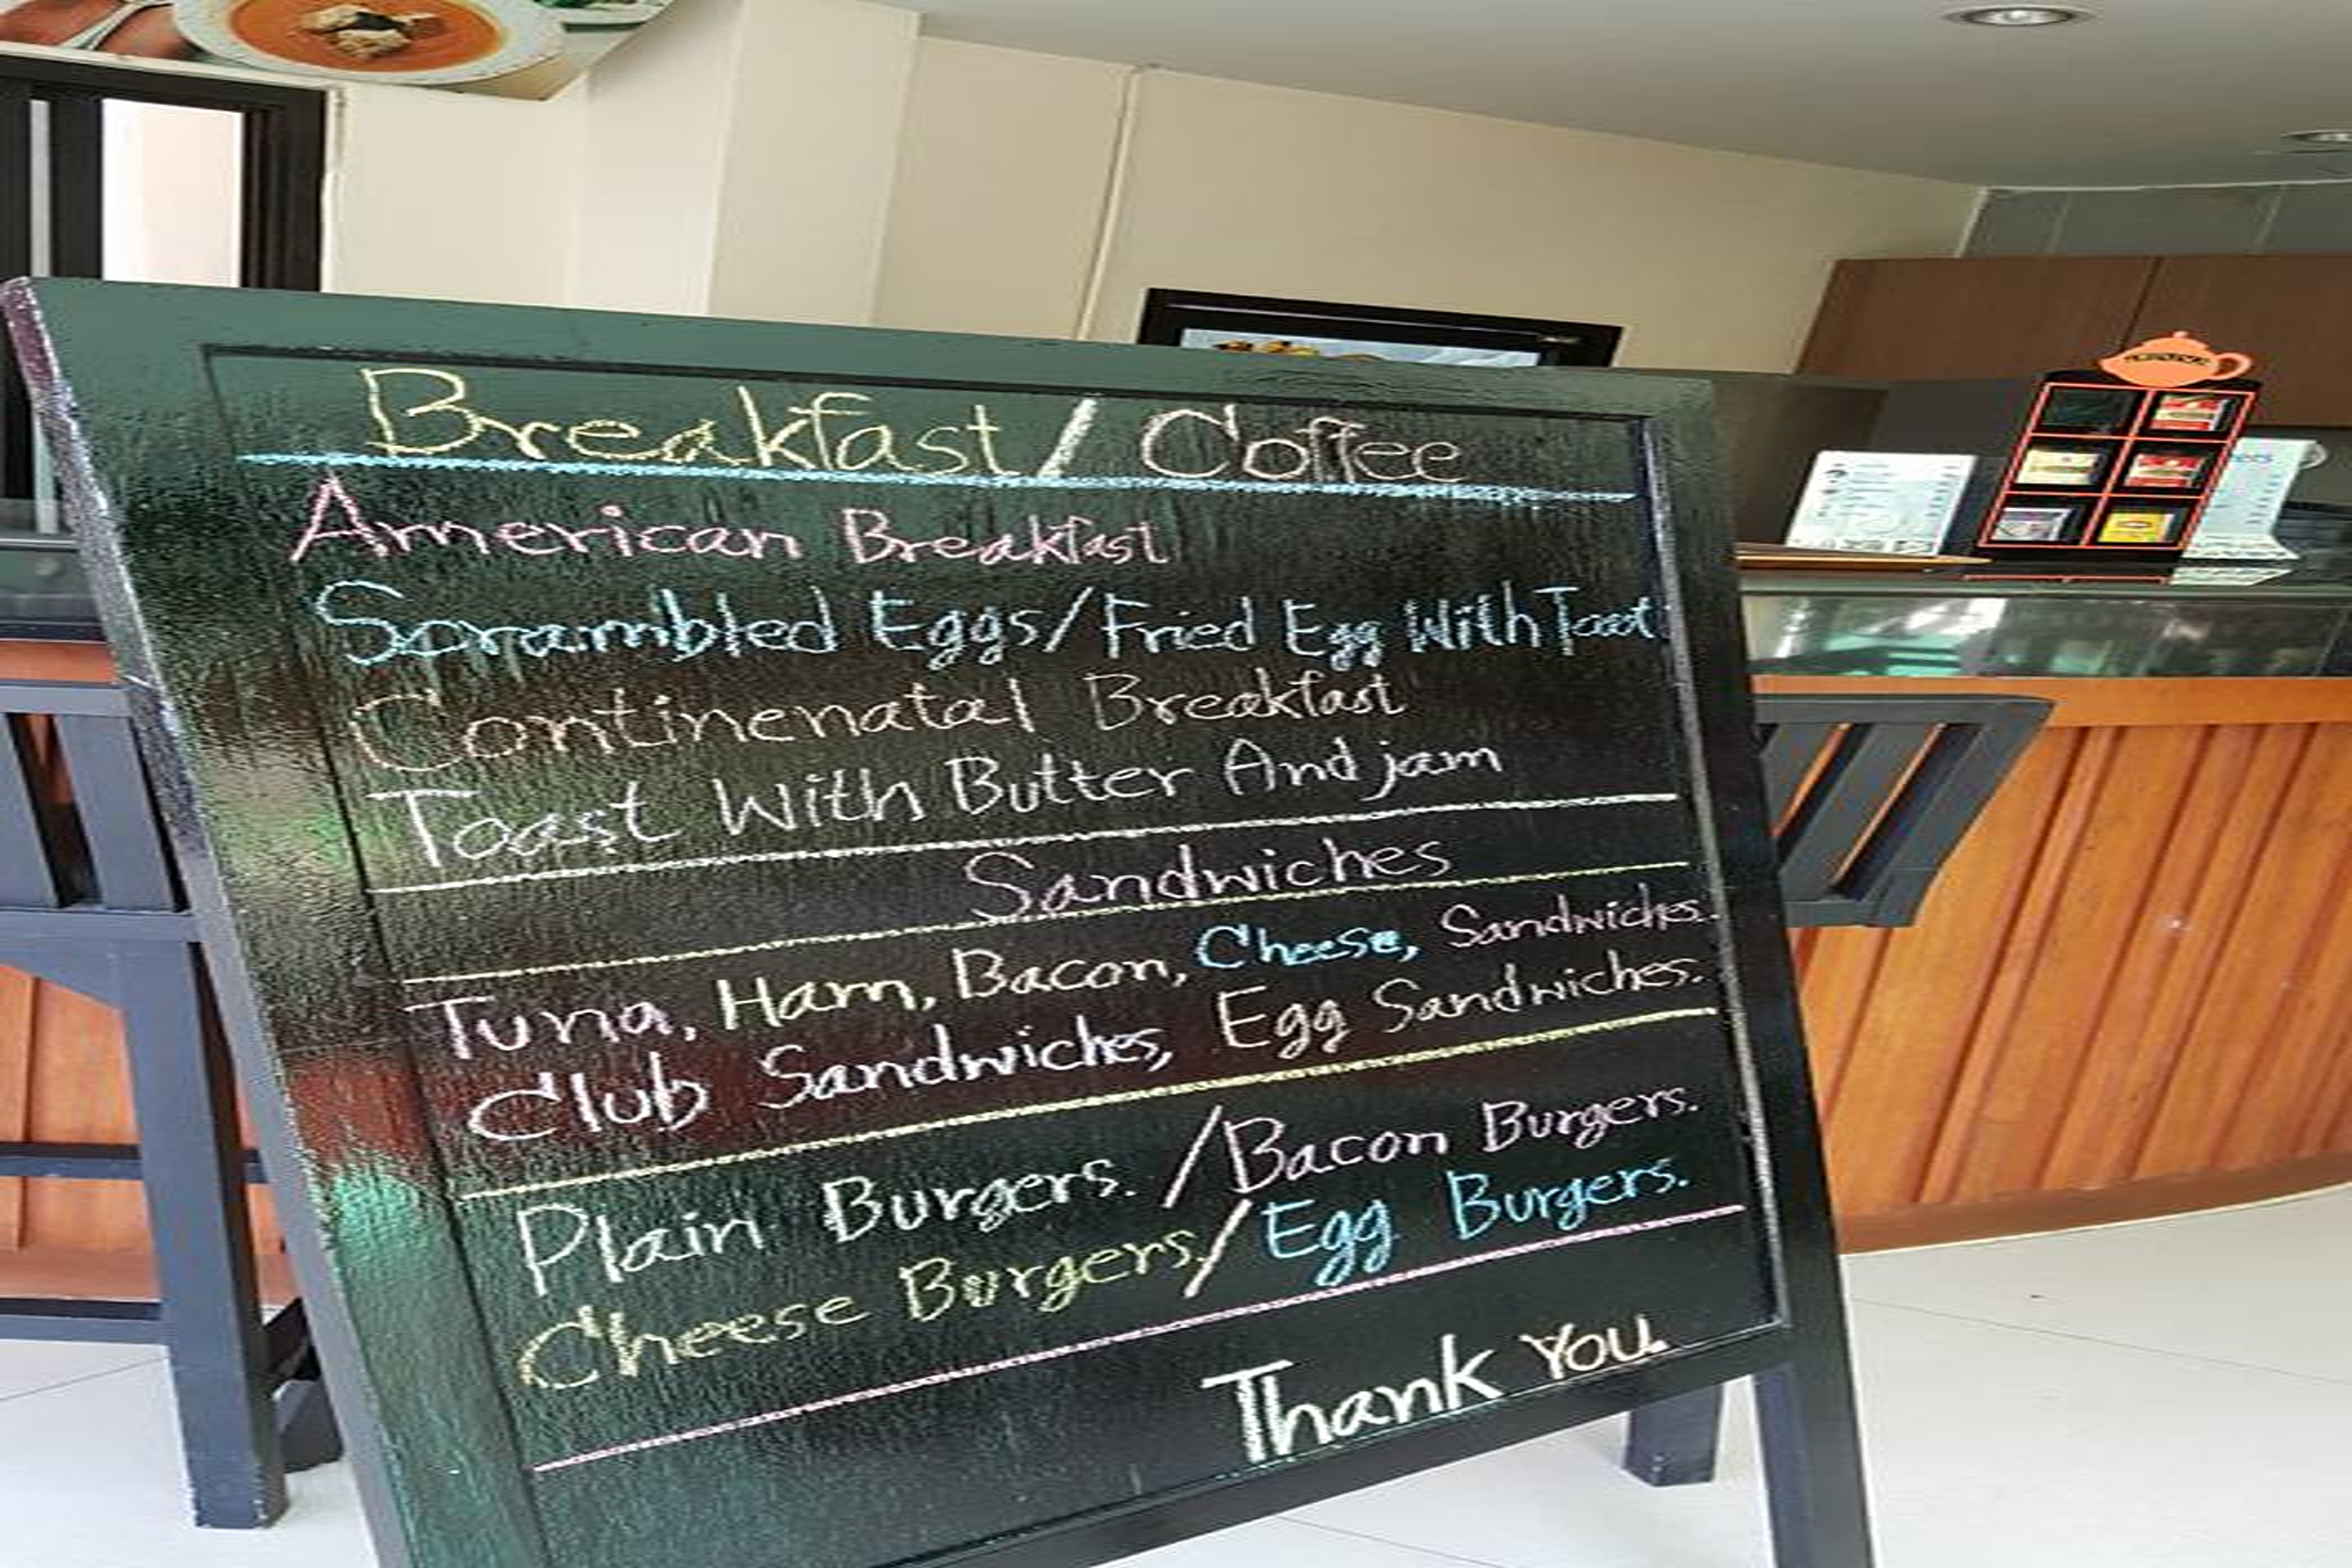 Breakfast/ Coffee
American Breakfast
Scrambled Eggs/Fried Egg With Toast
Continenatal Breakfast
Toast With Butter And jam
Sandwiches
Tuna, Ham, Bacon, Cheese, Sandwiches.
Club Sandwiches, Egg Sandwiches.
Plain Burgers. /Bacon Burgers.
Cheese Burgers./Egg Burgers.
Thank You.